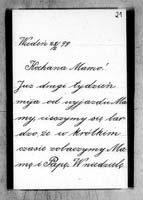 21
Wiedeń 28/IV 99
Kochana Mamo!
Już drugi tydzień
mija od wyjazdu Ma
my, cieszymy się bar
dzo, że w krótkim
czasie zobaczymy Ma
mę i Papę. W niedzielę